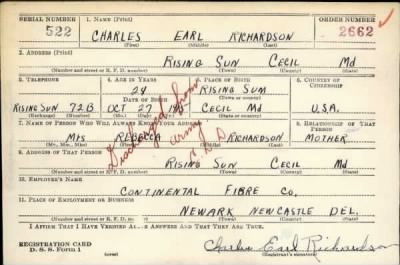 SERIAL NUMBER 1. NAME (Print) ORDER NUMBER
522 CHARLES EARL RICHARDSON 2662
(First) (Middle) (Last)
2. ADDRESS (Print)
RISING SUN CECIL Md
(Number and street or R. F. D. number) (Town) (County) (State)
3. TELEPHONE 4. AGE IN YEARS 5. PLACE OF BIRTH 6. COUNTRY OF CITIZENSHIP
24 RISING SUN
DATE OF BIRTH (Town or county)
RISING SUN 72 OCT 27 CECIL Md U.S.A.
(Exchange) (Number) (Mo.) (Day) (Yr.) (State or country)
7. NAME OF PERSON WHO WILL ALWAYS KNOW YOUR ADDRESS 8. RELATIONSHIP OF THAT PERSON
Mrs REBECCA RICHARDSON MOTHER
(Mr., Mrs., Miss) (First) (Middle) (Last)
Discharged from
army
9. ADDRESS OF THAT PERSON
RISING SUN CECIL Md
(Number and street or R. F. D. number) (Town) (County) (State)
10. EMPLOYER'S NAME
CONTINENTAL FIBRE Co.
11. PLACE OF EMPLOYMENT OR BUSINESS
NEWARK NEWCASTLE DEL.
(Number and street or R. F. D. number) (Town) (County) (State)
I AFFIRM THAT I HAVE VERIFIED ABOVE ANSWERS AND THAT THEY ARE TRUE.
REGISTRATION CARD
D. S. S. Form 1 Charles Earl Richardson
(Registrant's signature)